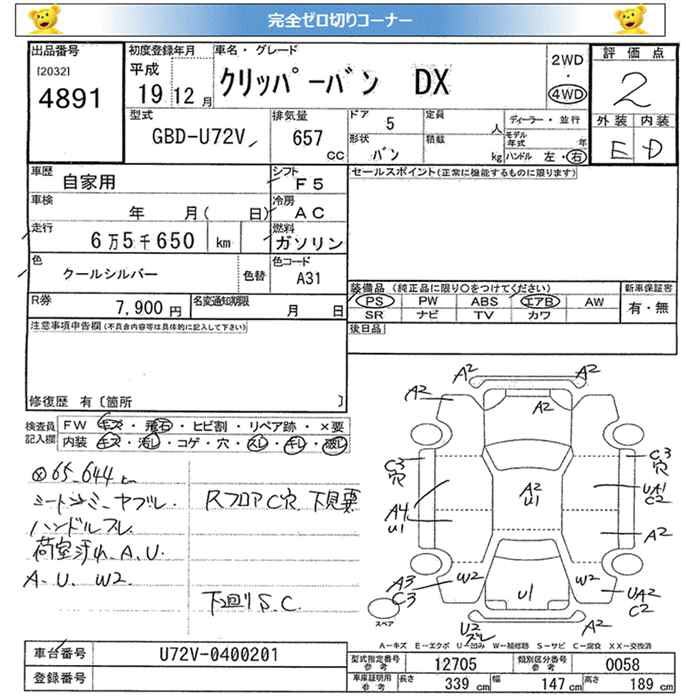 完全ゼロ切りコーナー
出品番号 初度登録年月 車名・グレード 評価点
[2032] 平成 2WD
4891 19 12月 クリッパーバン DX ・ 4WD 2
型式 排気量 ドア 5 定員 人 ディーラー・並行 外装 内装
GBD-U72V 657 cc 形状 バン 積載 kg モデル年式 年 E D
ハンドル 左・右
車歴 自家用 シフト F5 セールスポイント(正常に機能するものに限ります)
車検 年 月( 日) 冷房 AC
走行 6万5千650 km 燃料 ガソリン
色 クールシルバー 色替 色コード A31
装備品(純正品に限り○をつけてください) 新車保証書
R券 7,900円 名変通知期限 月 日 PS PW ABS エアB AW 有・無
SR ナビ TV カワ
注意事項申告欄(不具合内容等は具体的に記入して下さい) 後日品
修復歴 有〔箇所 〕
検査員記入欄 FW キズ・飛石・ヒビ割・リペア跡・×要
内装 キズ・汚れ・コゲ・穴・スレ・干し・破れ
65,644
シートシミ、ヤブレ Rフロア C穴 下見要
ハンドルスレ
荷室汚れ、A、U
A、U、W2
下回りS、C
A2 A2
A2 A2
A2
C3 穴 C3 穴
A2 U1
UA1 C2
A4 U1
A2
A3 C3
W2 W2
U1
UA2 C2
スペア
U2 ズレ
A2
A-キズ E-エクボ U-凹み W-補修跡 S-サビ C-腐食 XX-交換済
車台番号 U72V-0400201 型式指定番号 参考 12705 類別区分番号 参考 0058
登録番号 車庫証明用 参考 長さ 339 cm 幅 147 cm 高さ 189 cm